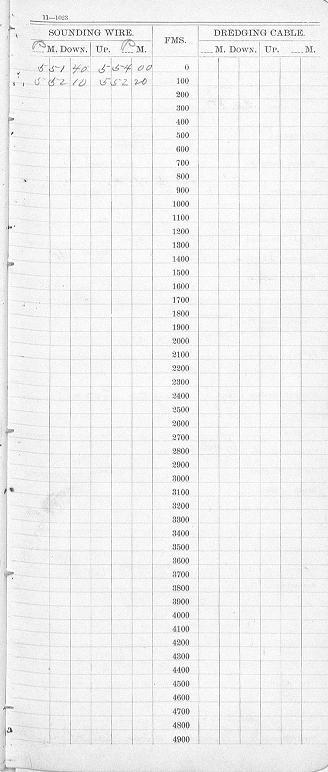 11—1023
SOUNDING WIRE. FMS. DREDGING CABLE.
P M. DOWN. UP. P M. M. DOWN. UP. M.
5 51 40 5 54 00 0
5 52 10 5 52 20 100
200
300
400
500
600
700
800
900
1000
1100
1200
1300
1400
1500
1600
1700
1800
1900
2000
2100
2200
2300
2400
2500
2600
2700
2800
2900
3000
3100
3200
3300
3400
3500
3600
3700
3800
3900
4000
4100
4200
4300
4400
4500
4600
4700
4800
4900